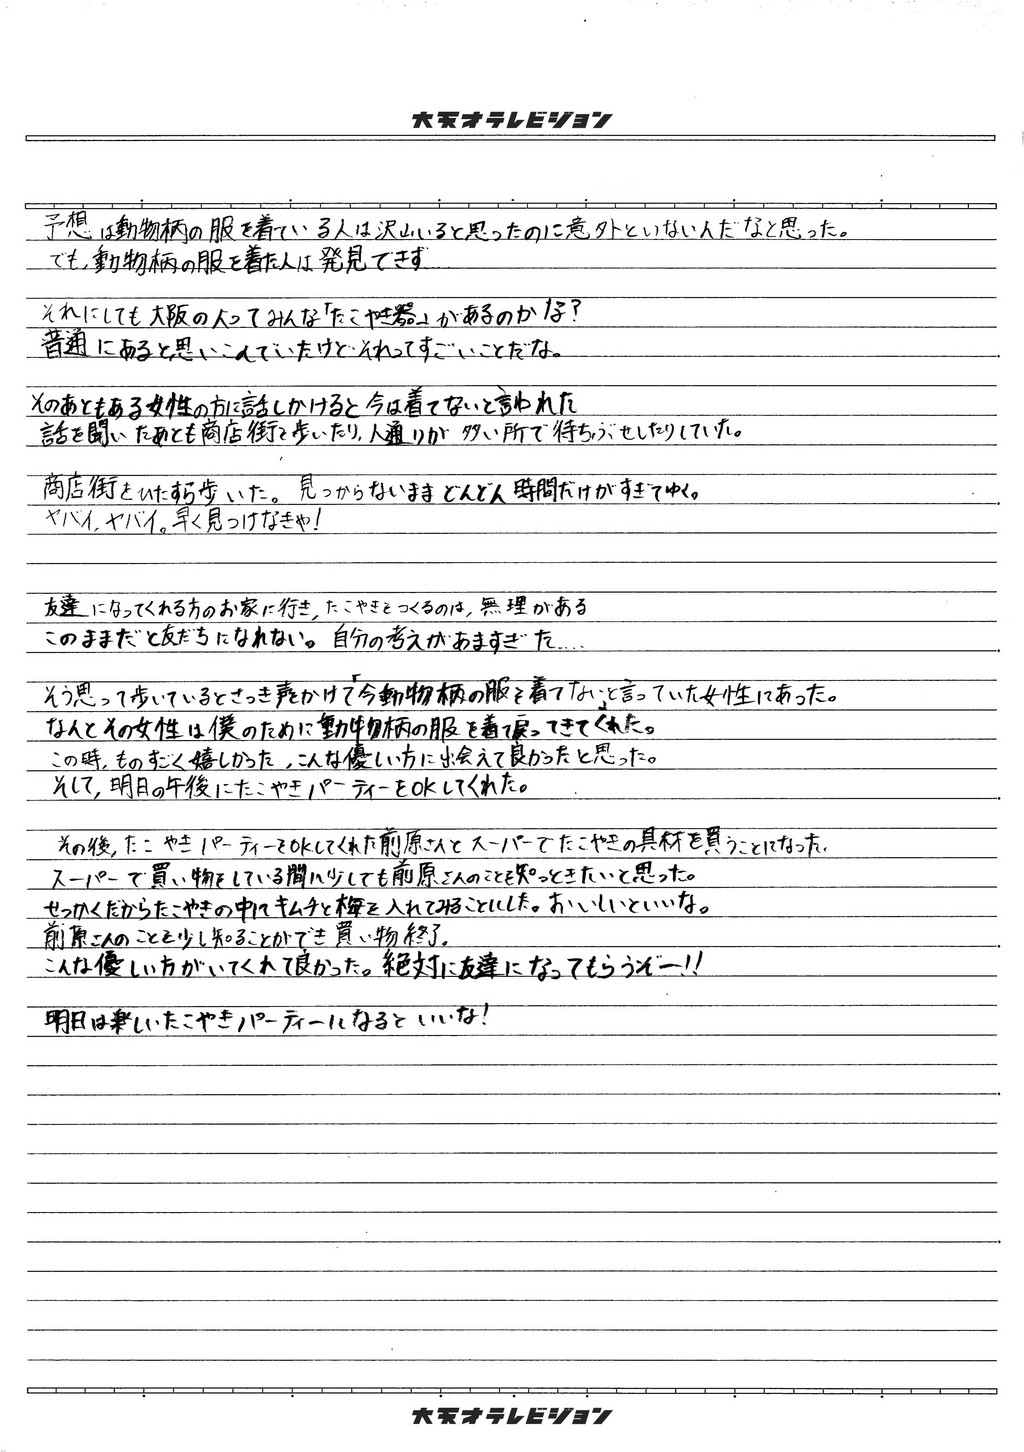 大天才テレビジョン
予想は動物柄の服を着ている人は沢山いると思ったのに意外といないんだなと思った。
でも、動物柄の服を着た人は発見できず…
それにしても大阪の人ってみんな「たこやき器」があるのかな？
普通にあると思いこんでいたけどそれってすごいことだな。
そのあともある女性の方に話しかけると今は着てないと言われた
話を聞いたあとも商店街を歩いたり、人通りが多い所で待ちぶせしたりしていた。
商店街をひたすら歩いた。見つからないままどんどん時間だけがすぎてゆく。
ヤバイ、ヤバイ。早く見つけなきゃ！
友達になってくれる方のお家に行き、たこやきをつくるのは、無理がある
このままだと友だちになれない。自分の考えがあますぎた….
そう思って歩いているとさっき声をかけて「今動物柄の服を着てない」と言っていた女性にあった。
なんとその女性は僕のために動物柄の服を着て戻ってきてくれた。
この時、ものすごく嬉しかった、こんな優しい方に出会えて良かったと思った。
そして、明日の午後にたこやきパーティーをOKしてくれた。
その後、たこやきパーティーをOKしてくれた前原さんとスーパーでたこやきの具材を買うことになった、
スーパーで買い物をしている間に少しでも前原さんのことを知っときたいと思った。
せっかくだからたこやきの中にキムチと梅を入れてみることにした。おいしいといいな。
前原さんのことを少し知ることができ買い物終了。
こんな優しい方がいてくれて良かった。絶対に友達になってもらうぞー！！
明日は楽しいたこやきパーティーになるといいな！
大天才テレビジョン